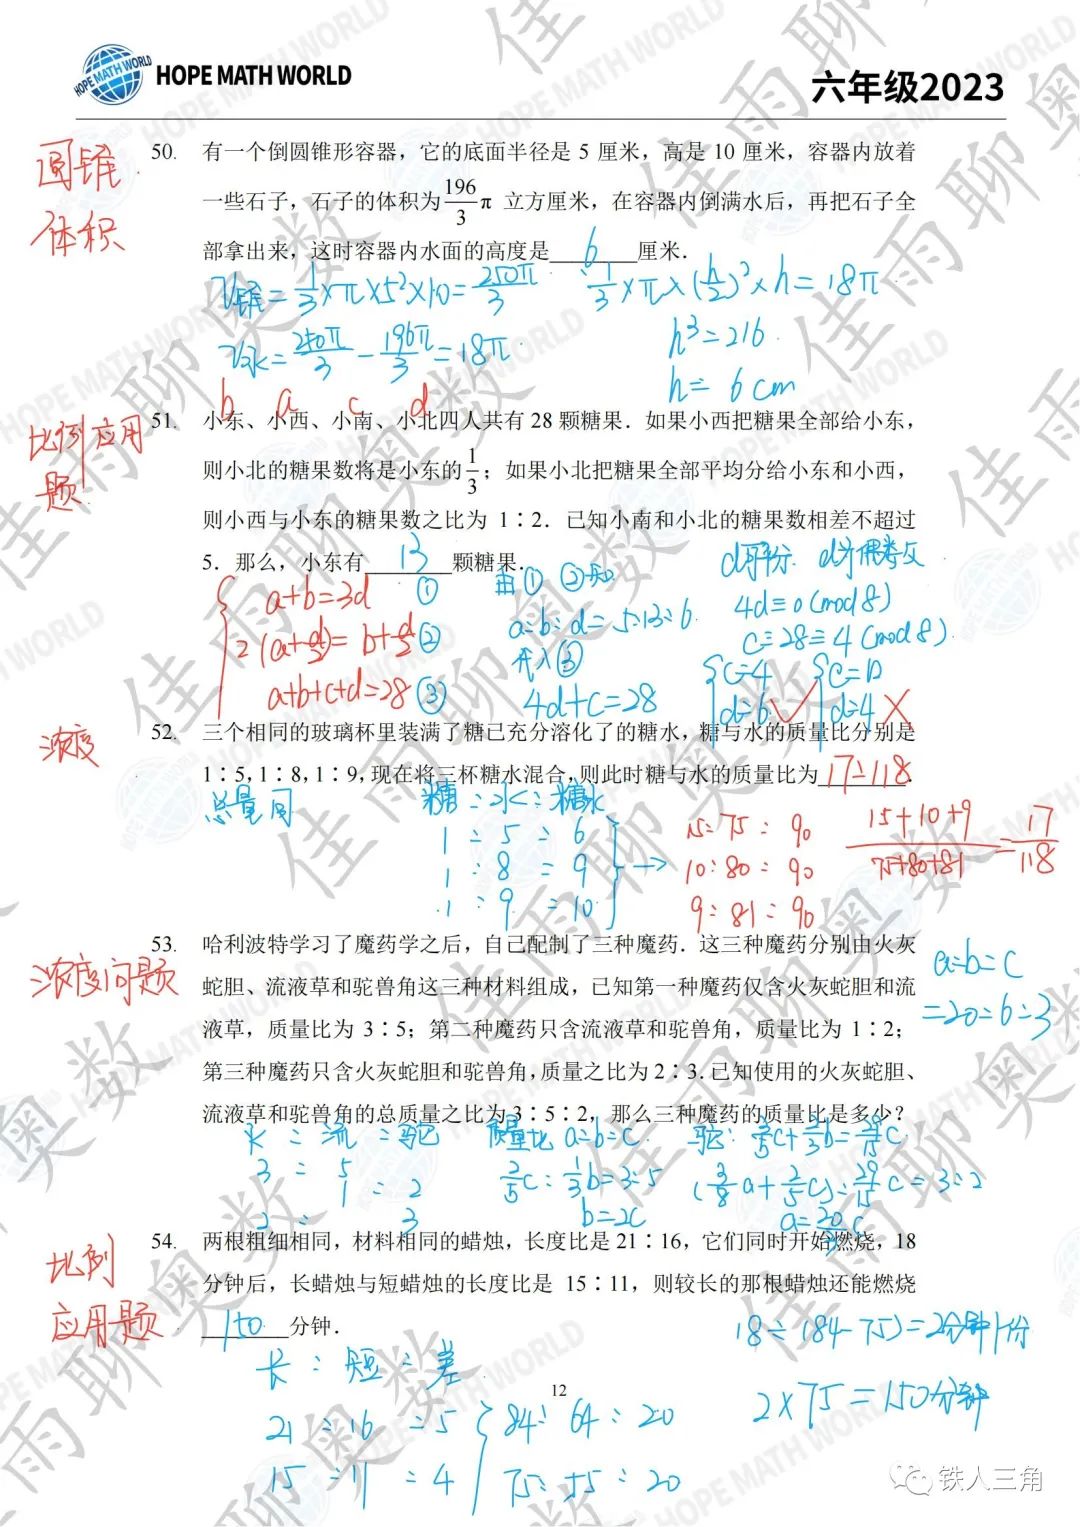 HOPE MATH WORLD
六年级2023
圆锥
体积
50. 有一个倒圆锥形容器，它的底面半径是 5 厘米，高是 10 厘米，容器内放着
一些石子，石子的体积为 196/3 π 立方厘米，在容器内倒满水后，再把石子全
部拿出来，这时容器内水面的高度是 6 厘米．
V锥=1/3×π×5²×10=250π/3
1/3×π×(h/2)²×h=18π
V水=250π/3-196π/3=18π.
h³=216.
h=6cm
b a c d
比例应用
题
51. 小东、小西、小南、小北四人共有 28 颗糖果．如果小西把糖果全部给小东，
则小北的糖果数将是小东的 1/3；如果小北把糖果全部平均分给小东和小西，
则小西与小东的糖果数之比为 1∶2．已知小南和小北的糖果数相差不超过
5．那么，小东有 13 颗糖果．
a+b=3d ①
2(a+d/2)=b+d/2 ②
a+b+c+d=28 ③
由① ②知
a:b:d=5:13:6.
代入③
4d+c=28
d可平分. d为偶数
4d≡0(mod8)
c≡28≡4(mod8).
c=4
d=6 ✓
c=12
d=4 ×
浓度
52. 三个相同的玻璃杯里装满了糖已充分溶化了的糖水，糖与水的质量比分别是
1∶5，1∶8，1∶9，现在将三杯糖水混合，则此时糖与水的质量比为 17:118．
总量同
糖:水:糖水
1 : 5 : 6
1 : 8 : 9
1 : 9 : 10
→
15:75:90
10:80:90
9:81:90
15+10+9/75+80+81=17/118
浓度问题
53. 哈利波特学习了魔药学之后，自己配制了三种魔药．这三种魔药分别由火灰
蛇胆、流液草和驼兽角这三种材料组成，已知第一种魔药仅含火灰蛇胆和流
液草，质量比为 3∶5；第二种魔药只含流液草和驼兽角，质量比为 1∶2；
第三种魔药只含火灰蛇胆和驼兽角，质量之比为 2∶3．已知使用的火灰蛇胆、
流液草和驼兽角的总质量之比为 3∶5∶2，那么三种魔药的质量比是多少？
a:b:c
=20:6:3
火:流:驼
3 : 5
1 : 2
2 : 3
质量比 a:b:c.
b=2c
驼: 3/5c+2/3b=29/15c.
(3/8a+2/5c):29/15c=3:2
a=20/3c
比例
应用题
54. 两根粗细相同，材料相同的蜡烛，长度比是 21∶16，它们同时开始燃烧，18
分钟后，长蜡烛与短蜡烛的长度比是 15∶11，则较长的那根蜡烛还能燃烧
150 分钟．
长:短:差
21:16:5
15:11:4
84:64:20
75:55:20
18÷(84-75)=2分钟/份
2×75=150分钟
12
铁人三角
佳雨聊奥数